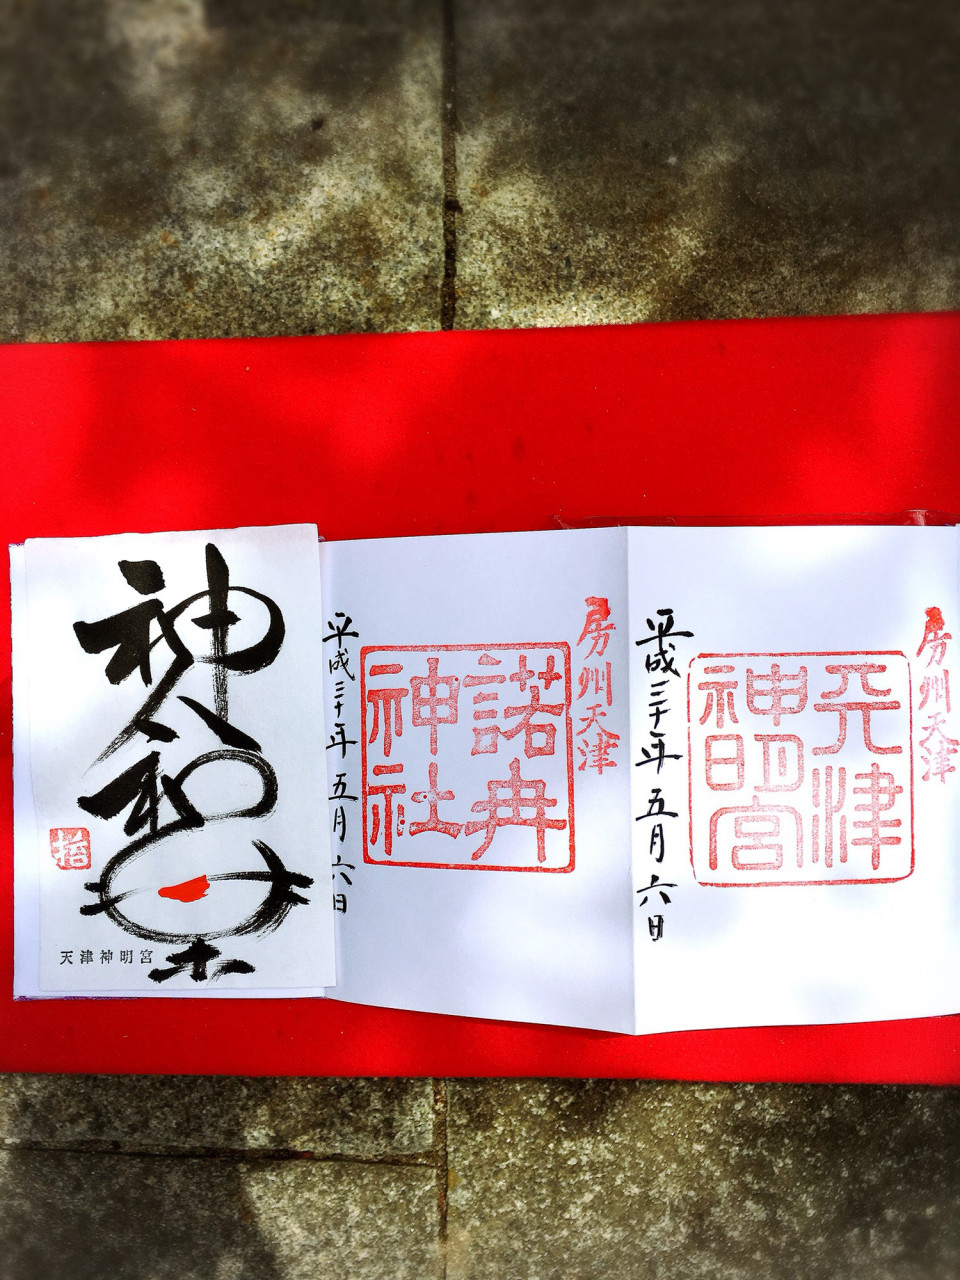 房州天津
天津
神明宮
平成三十年五月六日
房州天津
諾冉
神社
平成三十年五月六日
神人和楽
天津神明宮